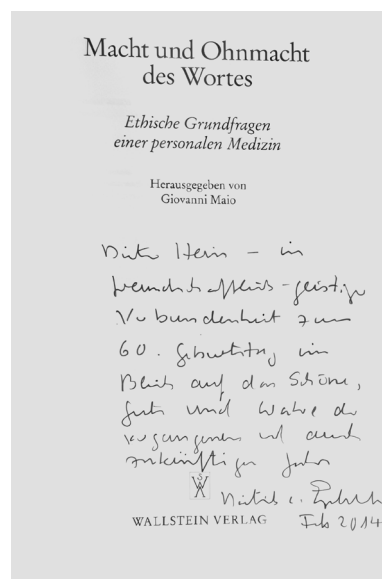 Macht und Ohnmacht
des Wortes
Ethische Grundfragen
einer personalen Medizin
Herausgegeben von
Giovanni Maio
– in
freundschaftlich-geistiger
Verbundenheit zum
60. Geburtstag im
Blick auf das Schöne,
Gute und Wahre der
vergangenen und auch
zukünftigen Jahre
WALLSTEIN VERLAG
Feb 2014